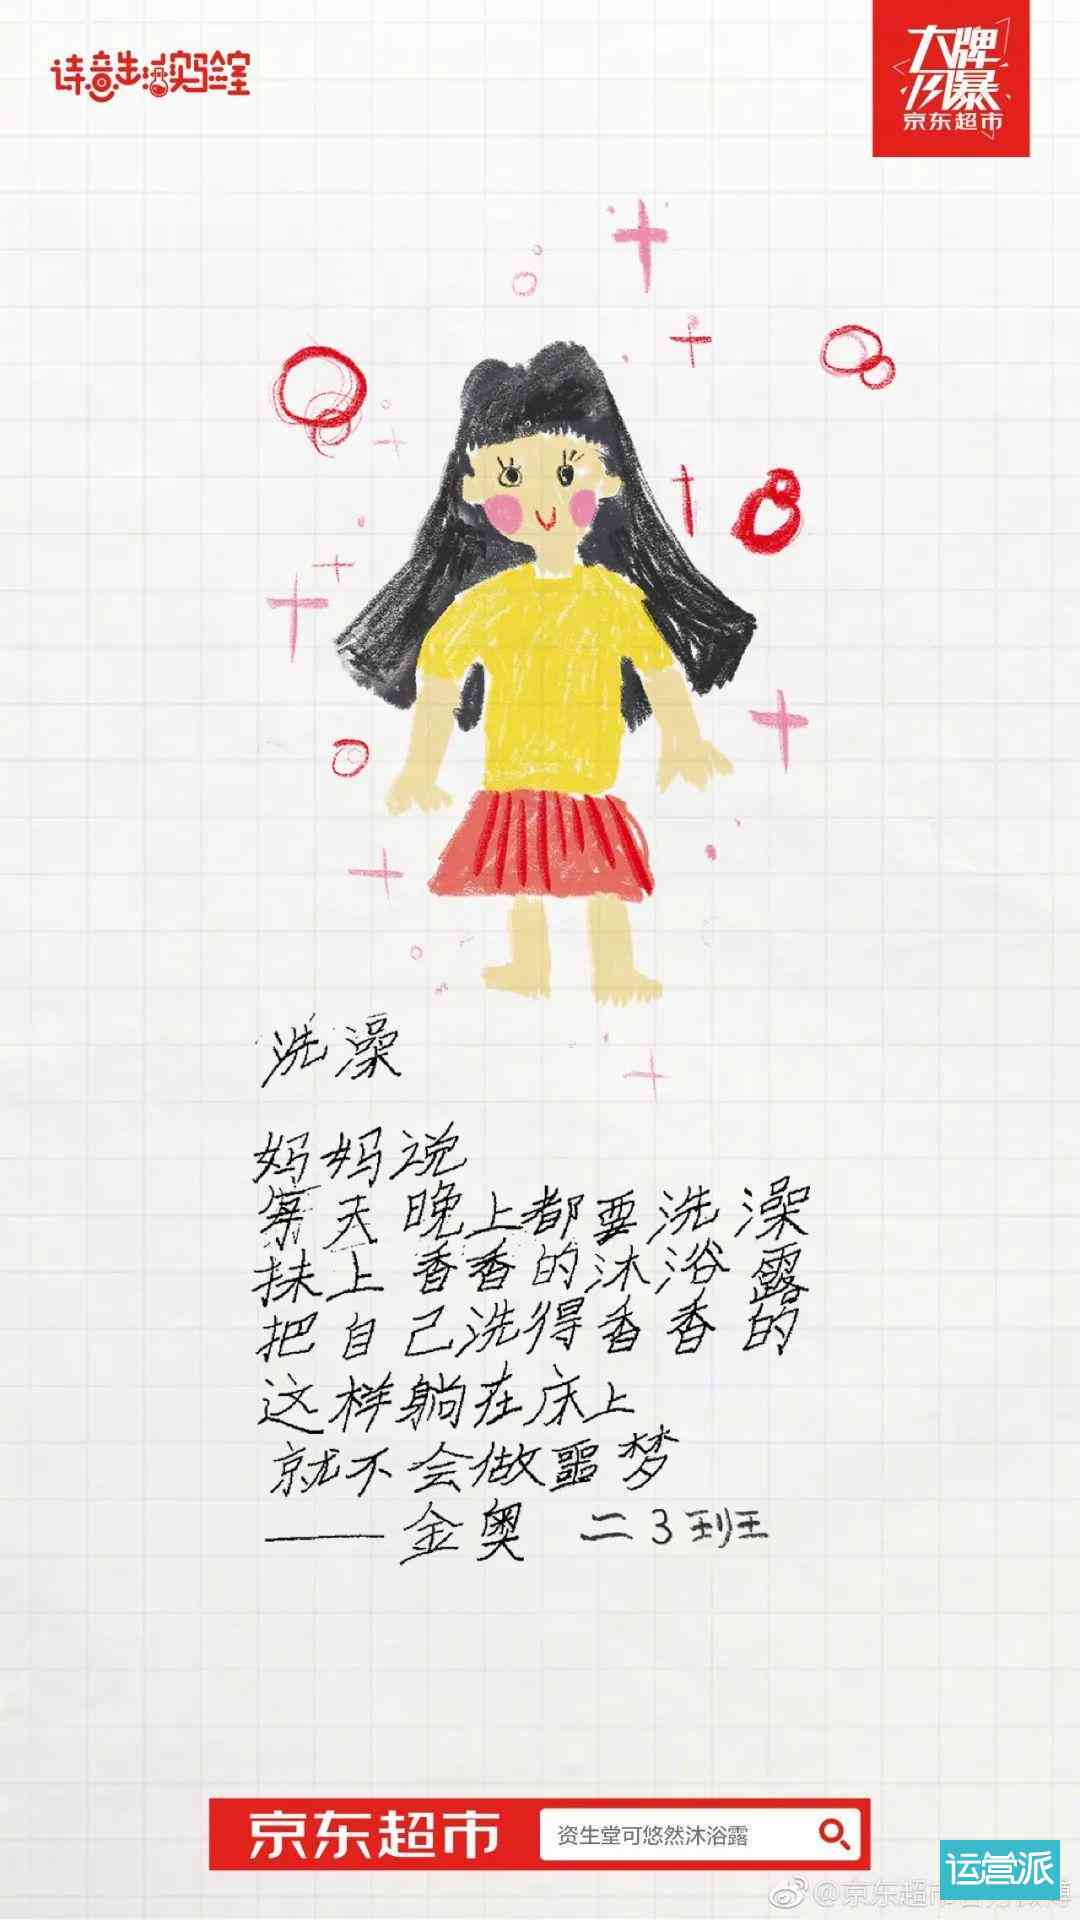 诗意生活实验室
大牌
风暴
京东超市
洗澡
妈妈说
每天晚上都要洗澡
抹上香香的沐浴露
把自己洗得香香的
这样躺在床上
就不会做噩梦
——金奥 二3班
京东超市 资生堂可悠然沐浴露
运营派
@京东超市官方微博